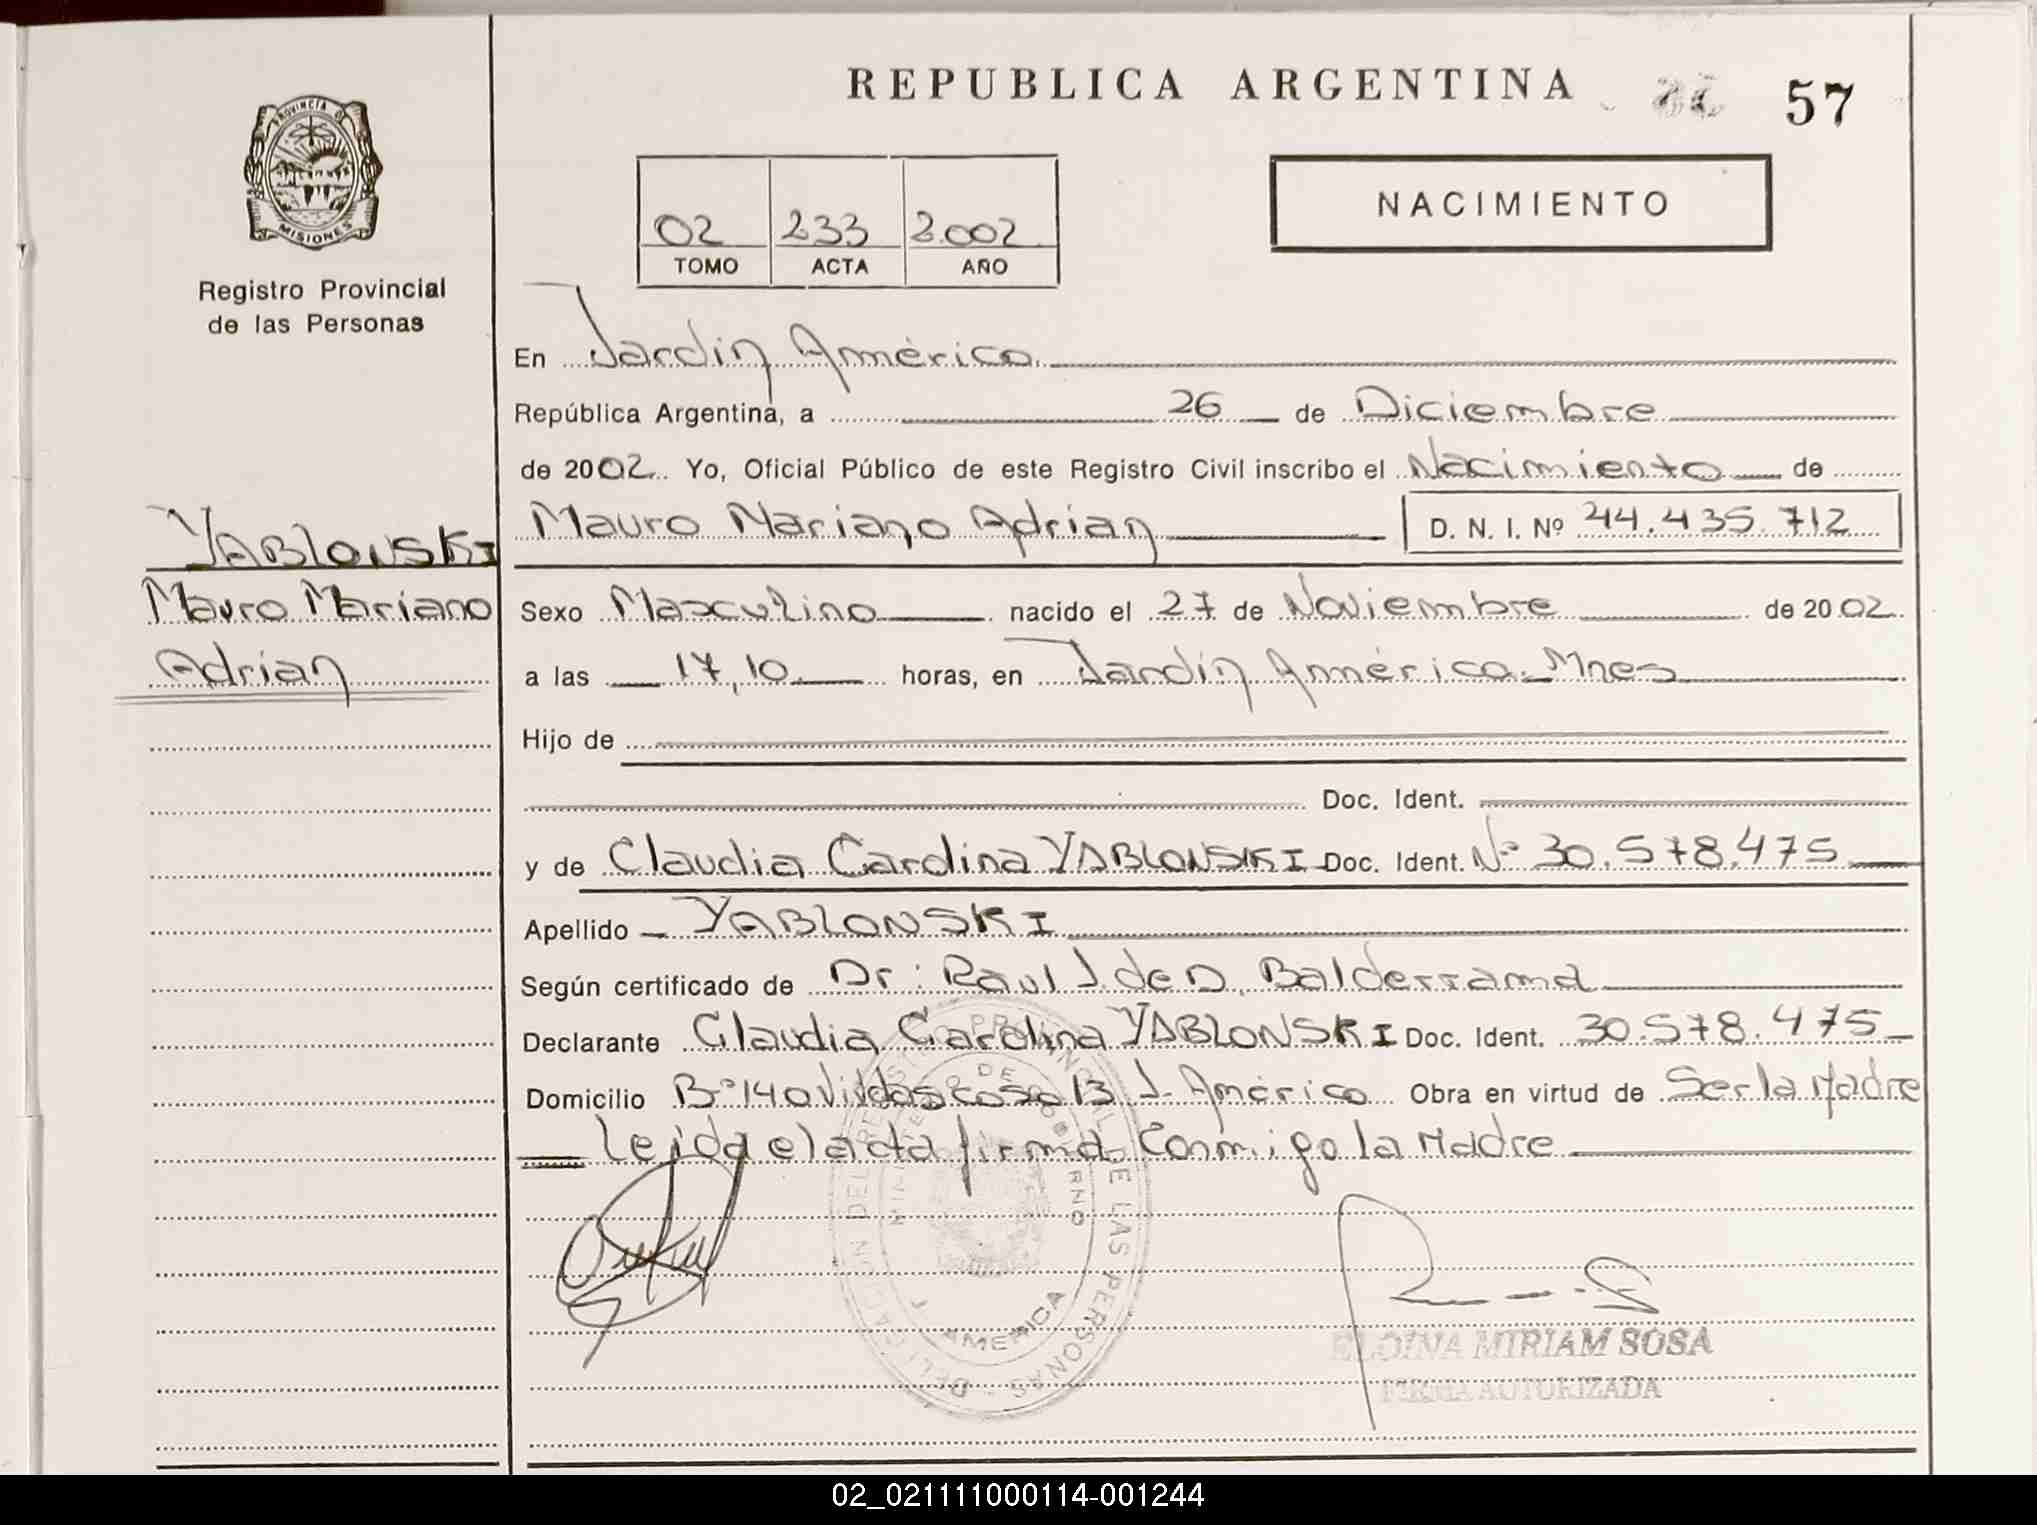 REPUBLICA ARGENTINA 57
PROVINCIA DE
MISIONES
Registro Provincial
de las Personas
NACIMIENTO
02 233 2.002
TOMO ACTA AÑO
En Jardín América
República Argentina, a 26 de Diciembre
de 2002 Yo, Oficial Público de este Registro Civil inscribo el Nacimiento de
YABLONSKI
Mauro Mariano
Adrian
Mauro Mariano Adrian D. N. I. Nº 44.435.712
Sexo Masculino nacido el 27 de Noviembre de 2002
a las 17,10 horas, en Jardín América - Mnes
Hijo de
Doc. Ident.
y de Claudia Carolina YABLONSKI Doc. Ident. Nº 30.578.475
Apellido YABLONSKI
Según certificado de Dr: Raul J. de D. Balderrama
Declarante Claudia Carolina YABLONSKI Doc. Ident. 30.578.475
Domicilio Bº 140 Viviendas casa 13 J. América Obra en virtud de Ser la Madre
Leida el acta firma Conmigo la Madre
DELEGACION DEL REGISTRO PROVINCIAL DE LAS PERSONAS
J. AMERICA
ELOINA MIRIAM SOSA
FIRMA AUTORIZADA
02_021111000114-001244